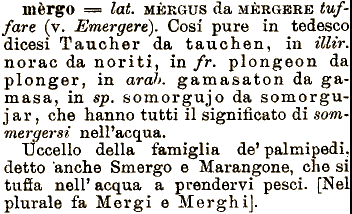 mèrgo = lat. MÈRGUS da MÈRGERE tuf-
fare (v. Emergere). Cosí pure in tedesco
dicesi Taucher da tauchen, in illir.
norac da noriti, in fr. plongeon da
plonger, in arab. gamasaton da ga-
masa, in sp. somorgujo da somorgu-
jar, che hanno tutti il significato di som-
mergersi nell'acqua.
Uccello della famiglia de' palmipedi,
detto anche Smergo e Marangone, che si
tuffa nell'acqua a prendervi pesci. [Nel
plurale fa Mergi e Merghi].